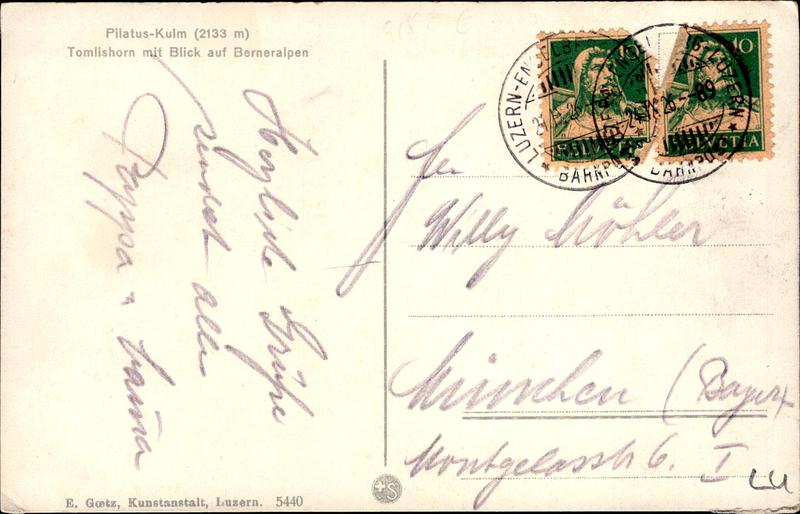 Pilatus-Kulm (2133 m)
Tomlishorn mit Blick auf Berneralpen
Herzliche Grüße
sendet allen
Pappa u. Mama
10
HELVETIA
10
HELVETIA
LUZERN-ENGELBERG
BAHNPOST
LUZERN
BAHNPOST
Willy Köhler
München (Bayern
Montgelasstr 6. I
LU
E. Gœtz, Kunstanstalt, Luzern. 5440